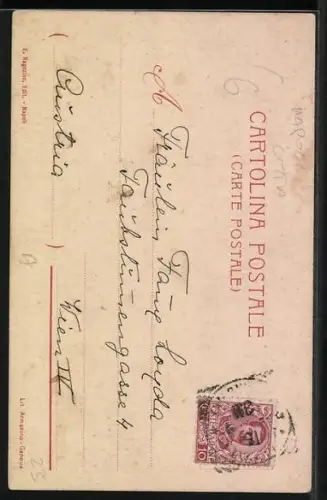 CARTOLINA POSTALE
(CARTE POSTALE)
A Fräulein Fany Loyda
Taubstumengasse 4
Wien IV
( Austria )
E. Ragozino, Edit. - Napoli
Lit. Armanino - Genova
10
A
25
6